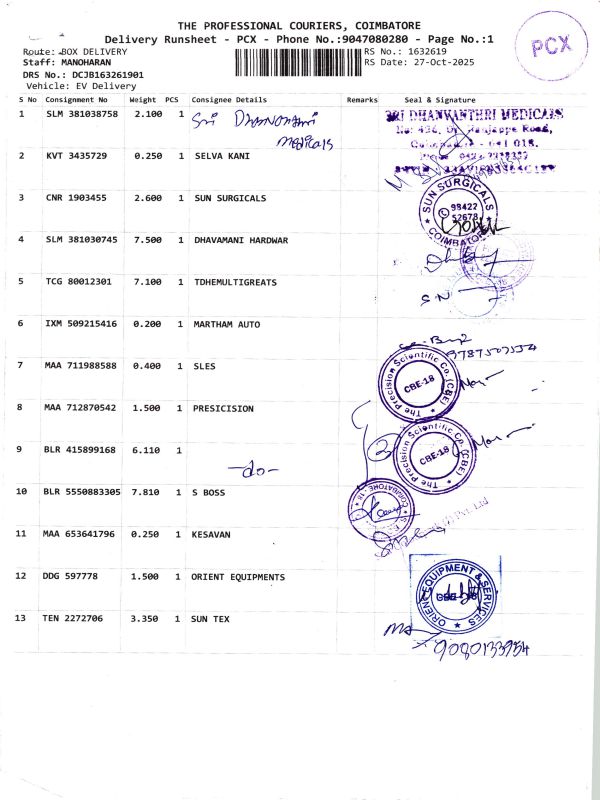 THE PROFESSIONAL COURIERS, COIMBATORE
Delivery Runsheet - PCX - Phone No.:9047080280 - Page No.:1
Route: BOX DELIVERY
RS No.: 1632619
Staff: MANOHARAN
RS Date: 27-Oct-2025
DRS No.: DCJB163261901
Vehicle: EV Delivery
PCX
S No Consignment No Weight PCS Consignee Details Remarks Seal & Signature
1 SLM 381038758 2.100 1 Sri Dhanvantri Medicals
SRI DHANVANTHRI MEDICALS
2 KVT 3435729 0.250 1 SELVA KANI
3 CNR 1903455 2.600 1 SUN SURGICALS
SUN SURGICALS
98422
52678
COIMBATORE
4 SLM 381030745 7.500 1 DHAVAMANI HARDWAR
5 TCG 80012301 7.100 1 TDHEMULTIGREATS
S N
6 IXM 509215416 0.200 1 MARTHAM AUTO
7 MAA 711988588 0.400 1 SLES
The Precision Scientific Co. (CBE)
CBE-18
8 MAA 712870542 1.500 1 PRESICISION
The Precision Scientific Co. (CBE)
CBE-18
9 BLR 415899168 6.110 1 -do-
10 BLR 5550883305 7.810 1 S BOSS
11 MAA 653641796 0.250 1 KESAVAN
12 DDG 597778 1.500 1 ORIENT EQUIPMENTS
ORIENT EQUIPMENT & SERVICES
13 TEN 2272706 3.350 1 SUN TEX
9080133954